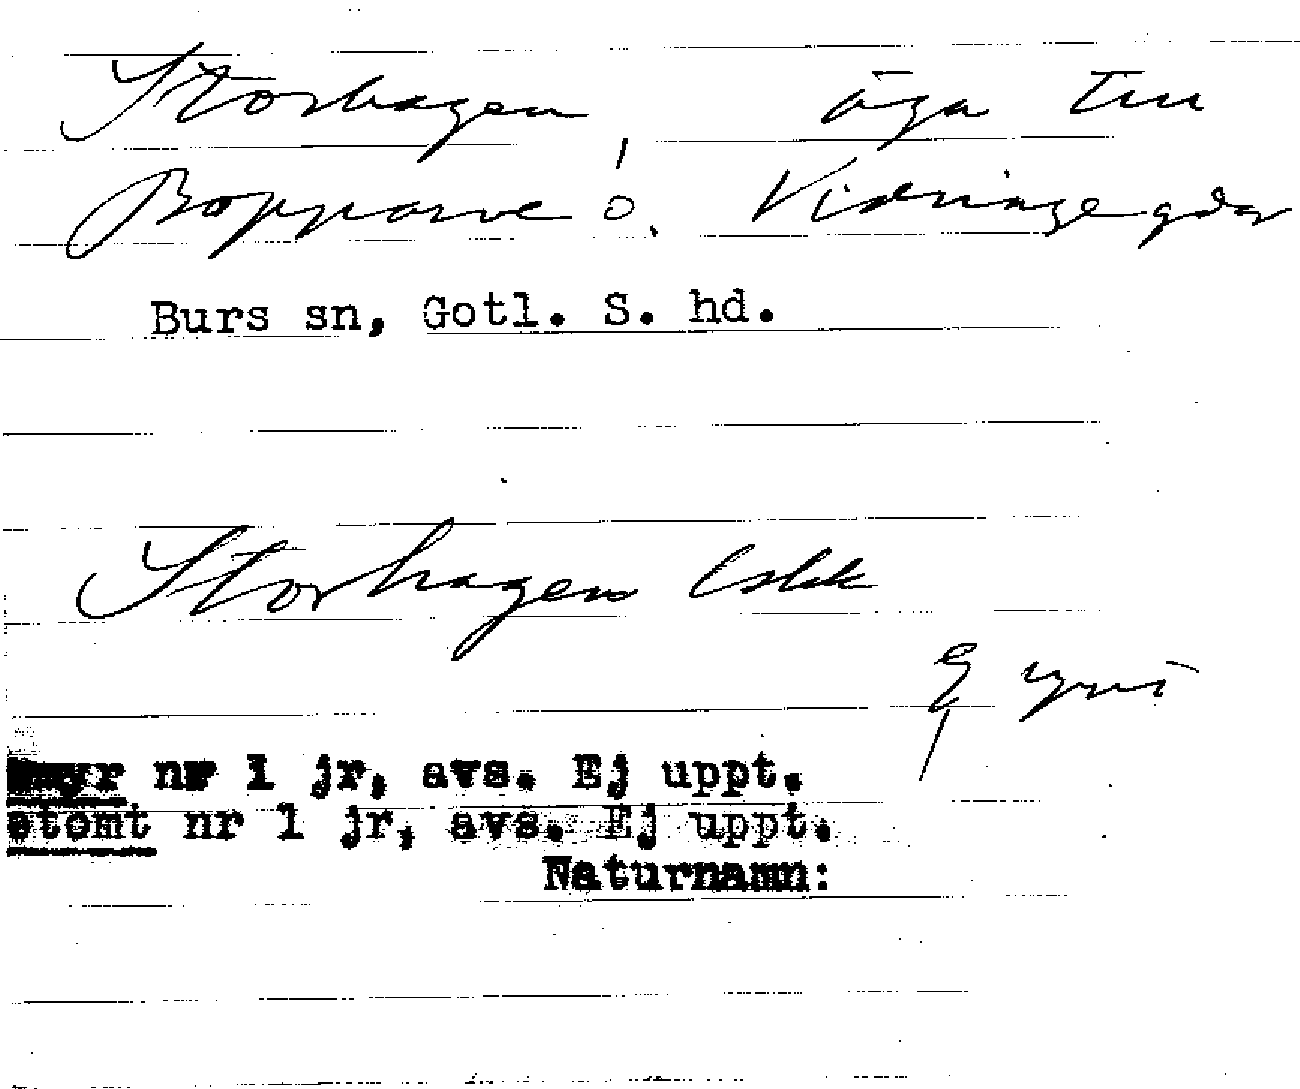 Storhagen, äga till
Bopparve o. Vidringe gdar
Burs sn, Gotl. S. hd.
Storhagen
Ej
nr 1 jr, avs. Ej uppt.
stomt nr 1 jr, avs. Ej uppt.
Naturnamn: